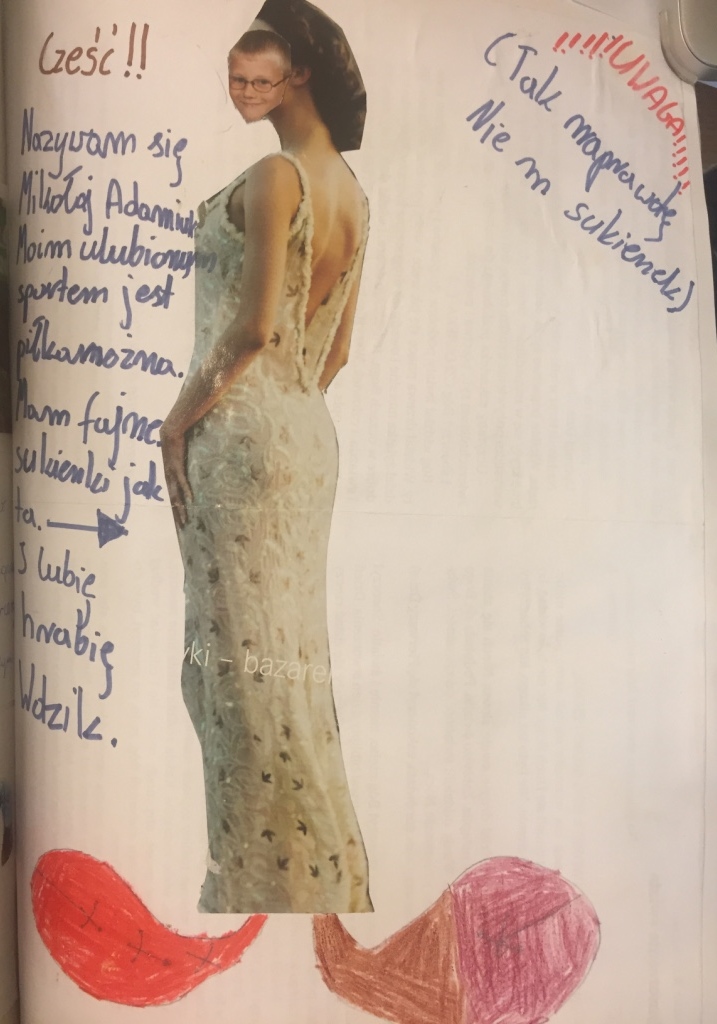 Cześć!!
Nazywam się
Mikołaj Adamiuk
Moim ulubionym
sportem jest
piłkamożna.
Mam fajne
sukienki jak
ta.
I lubię
hrabię
Wdzik.
yki – bazarek
!!!!!UWAGA!!!!!
(Tak naprawdę
Nie m sukienek)